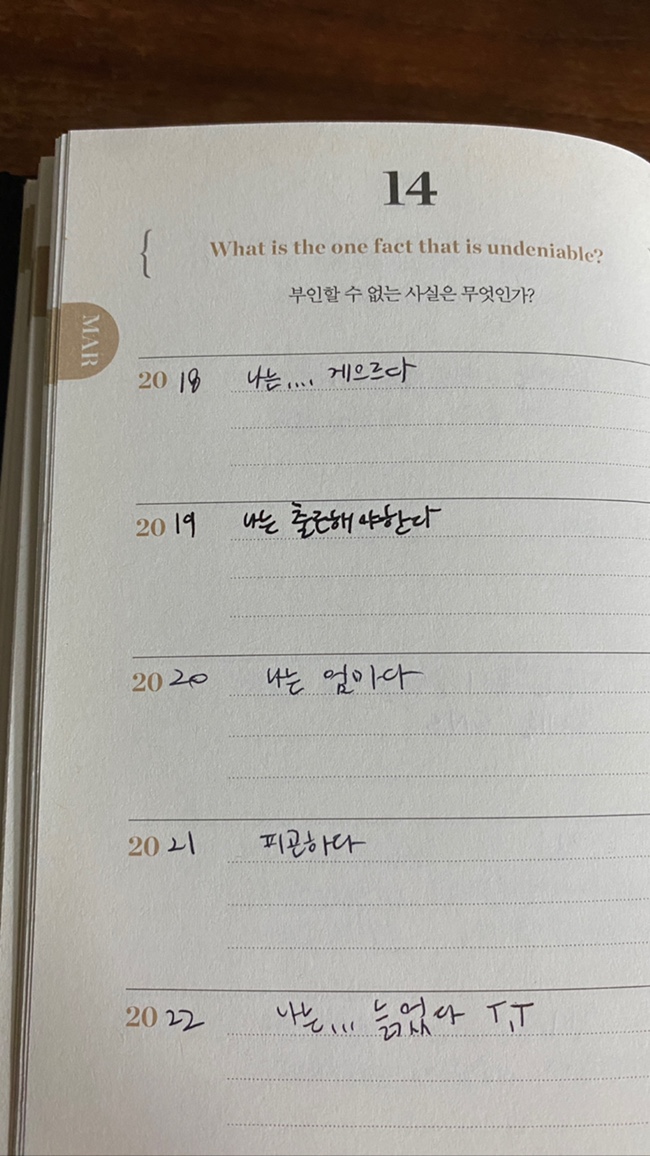 14
What is the one fact that is undeniable?
부인할 수 없는 사실은 무엇인가?
MAR
2018 나는.... 게으르다
2019 나는 출근해야한다
2020 나는 엄마다
2021 피곤하다
2022 나는... 늙었다 T.T